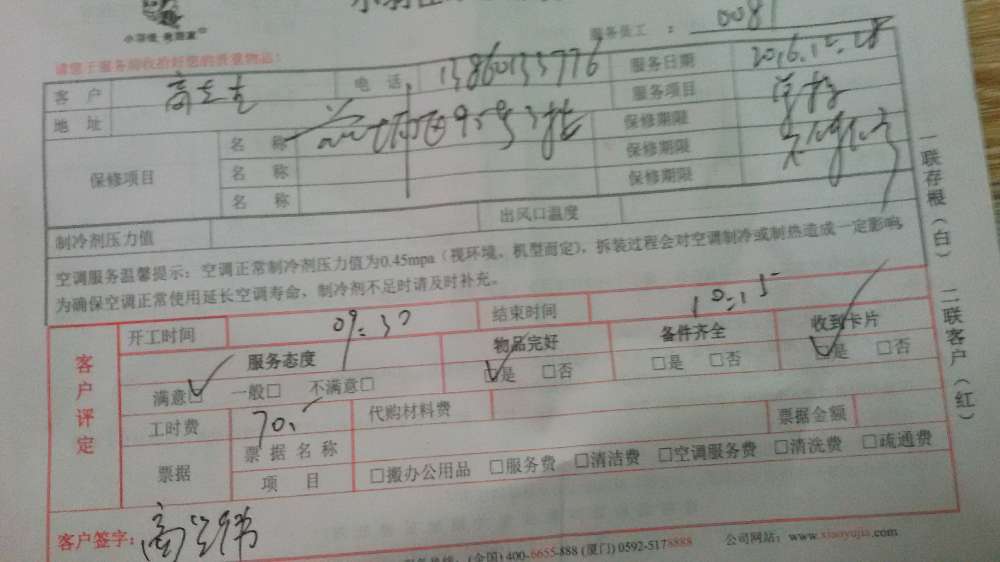 小羽佳 家政
服务员工 : 0081
请您于服务前收拾好您的贵重物品:
客 户 电 话 13860133776 服务日期 2016.12.28
地 址 服务项目
保修项目 名 称 保修期限
名 称 保修期限
名 称 保修期限
制冷剂压力值 出风口温度
空调服务温馨提示: 空调正常制冷剂压力值为0.45mpa (视环境、机型而定), 拆装过程会对空调制冷或制热造成一定影响,
为确保空调正常使用延长空调寿命, 制冷剂不足时请及时补充。
客户评定
开工时间 09:30 结束时间 10:15
服务态度 物品完好 备件齐全 收到卡片
满意□ 一般□ 不满意□ □是 □否 □是 □否 □是 □否
工时费 70.- 代购材料费
票据 票据名称 票据金额
项 目 □搬办公用品 □服务费 □清洁费 □空调服务费 □清洗费 □疏通费
客户签字:
(全国) 400-6655-888 (厦门) 0592-5178888 公司网站: www.xiaoyujia.com
一联存根(白) 二联客户(红)